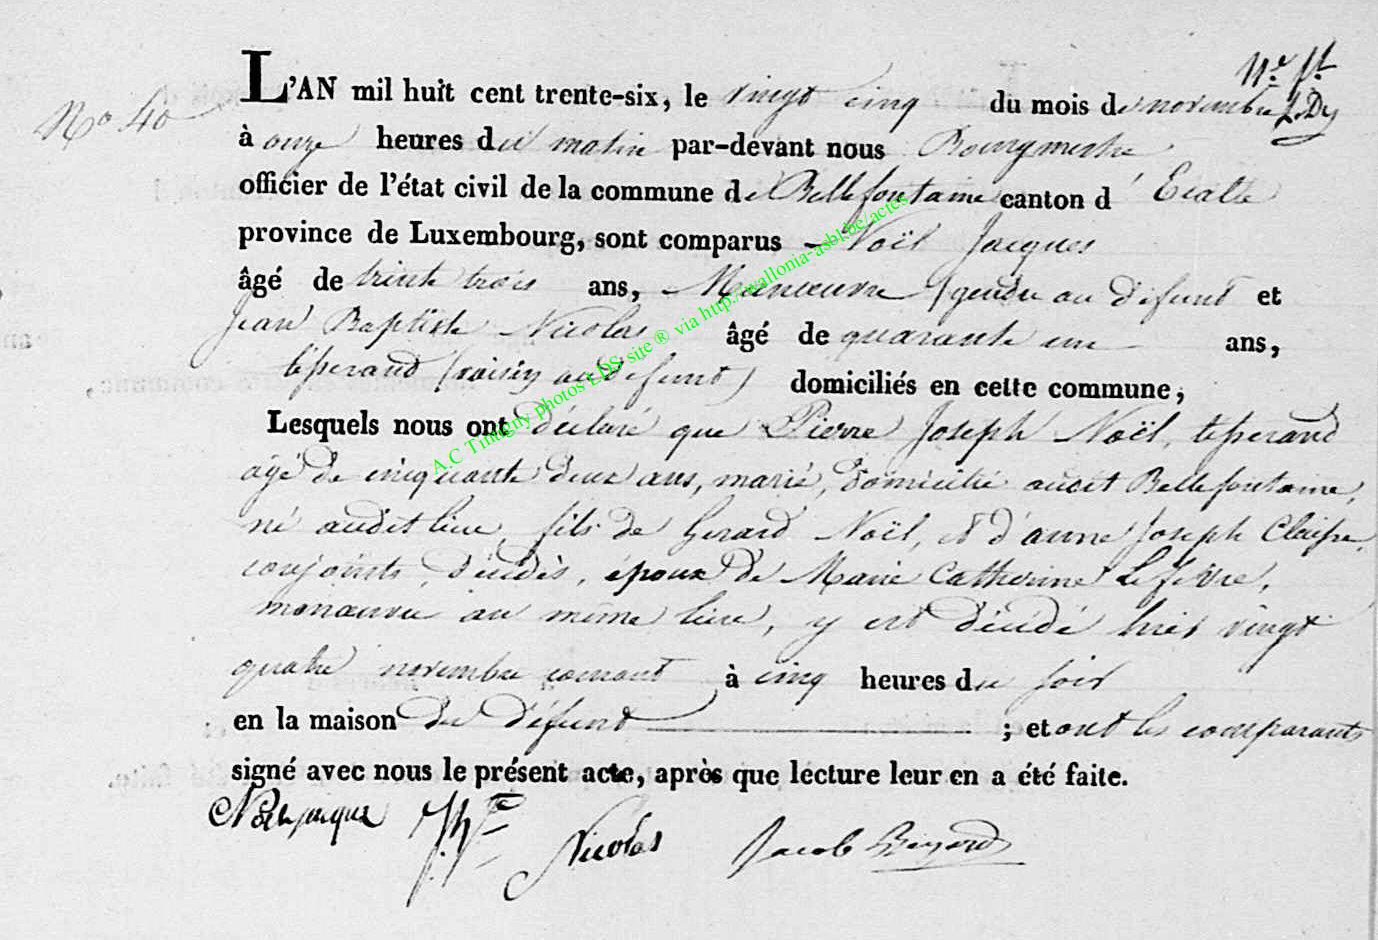 N° 40
L'AN mil huit cent trente-six, le vingt cinq du mois de novembre
à onze heures du matin par-devant nous Bourgmestre
officier de l'état civil de la commune de Bellefontaine canton d' Etalle
province de Luxembourg, sont comparus Noël Jacques
âgé de trente trois ans, Manoeuvre (gendre au défunt et
Jean Baptiste Nicolas âgé de quarante un ans,
tisserand (voisin au défunt) domiciliés en cette commune,
Lesquels nous ont déclaré que Pierre Joseph Noël, tisserand
âgé de cinquante deux ans, marié, domicilié audit Bellefontaine,
né audit lieu, fils de Gerard Noël, et d'anne Joseph
conjoints, décédés, époux de Marie Catherine Lefevre,
manoeuvre au même lieu, y est décédé hier vingt
quatre novembre courant à cinq heures du soir
en la maison du défunt ; et ont les comparants
signé avec nous le présent acte, après que lecture leur en a été faite.
Noel jacque J Bte Nicolas Jacob
A.C Tintigny photos LDS site ® via http://wallonia-asbl.be/actes